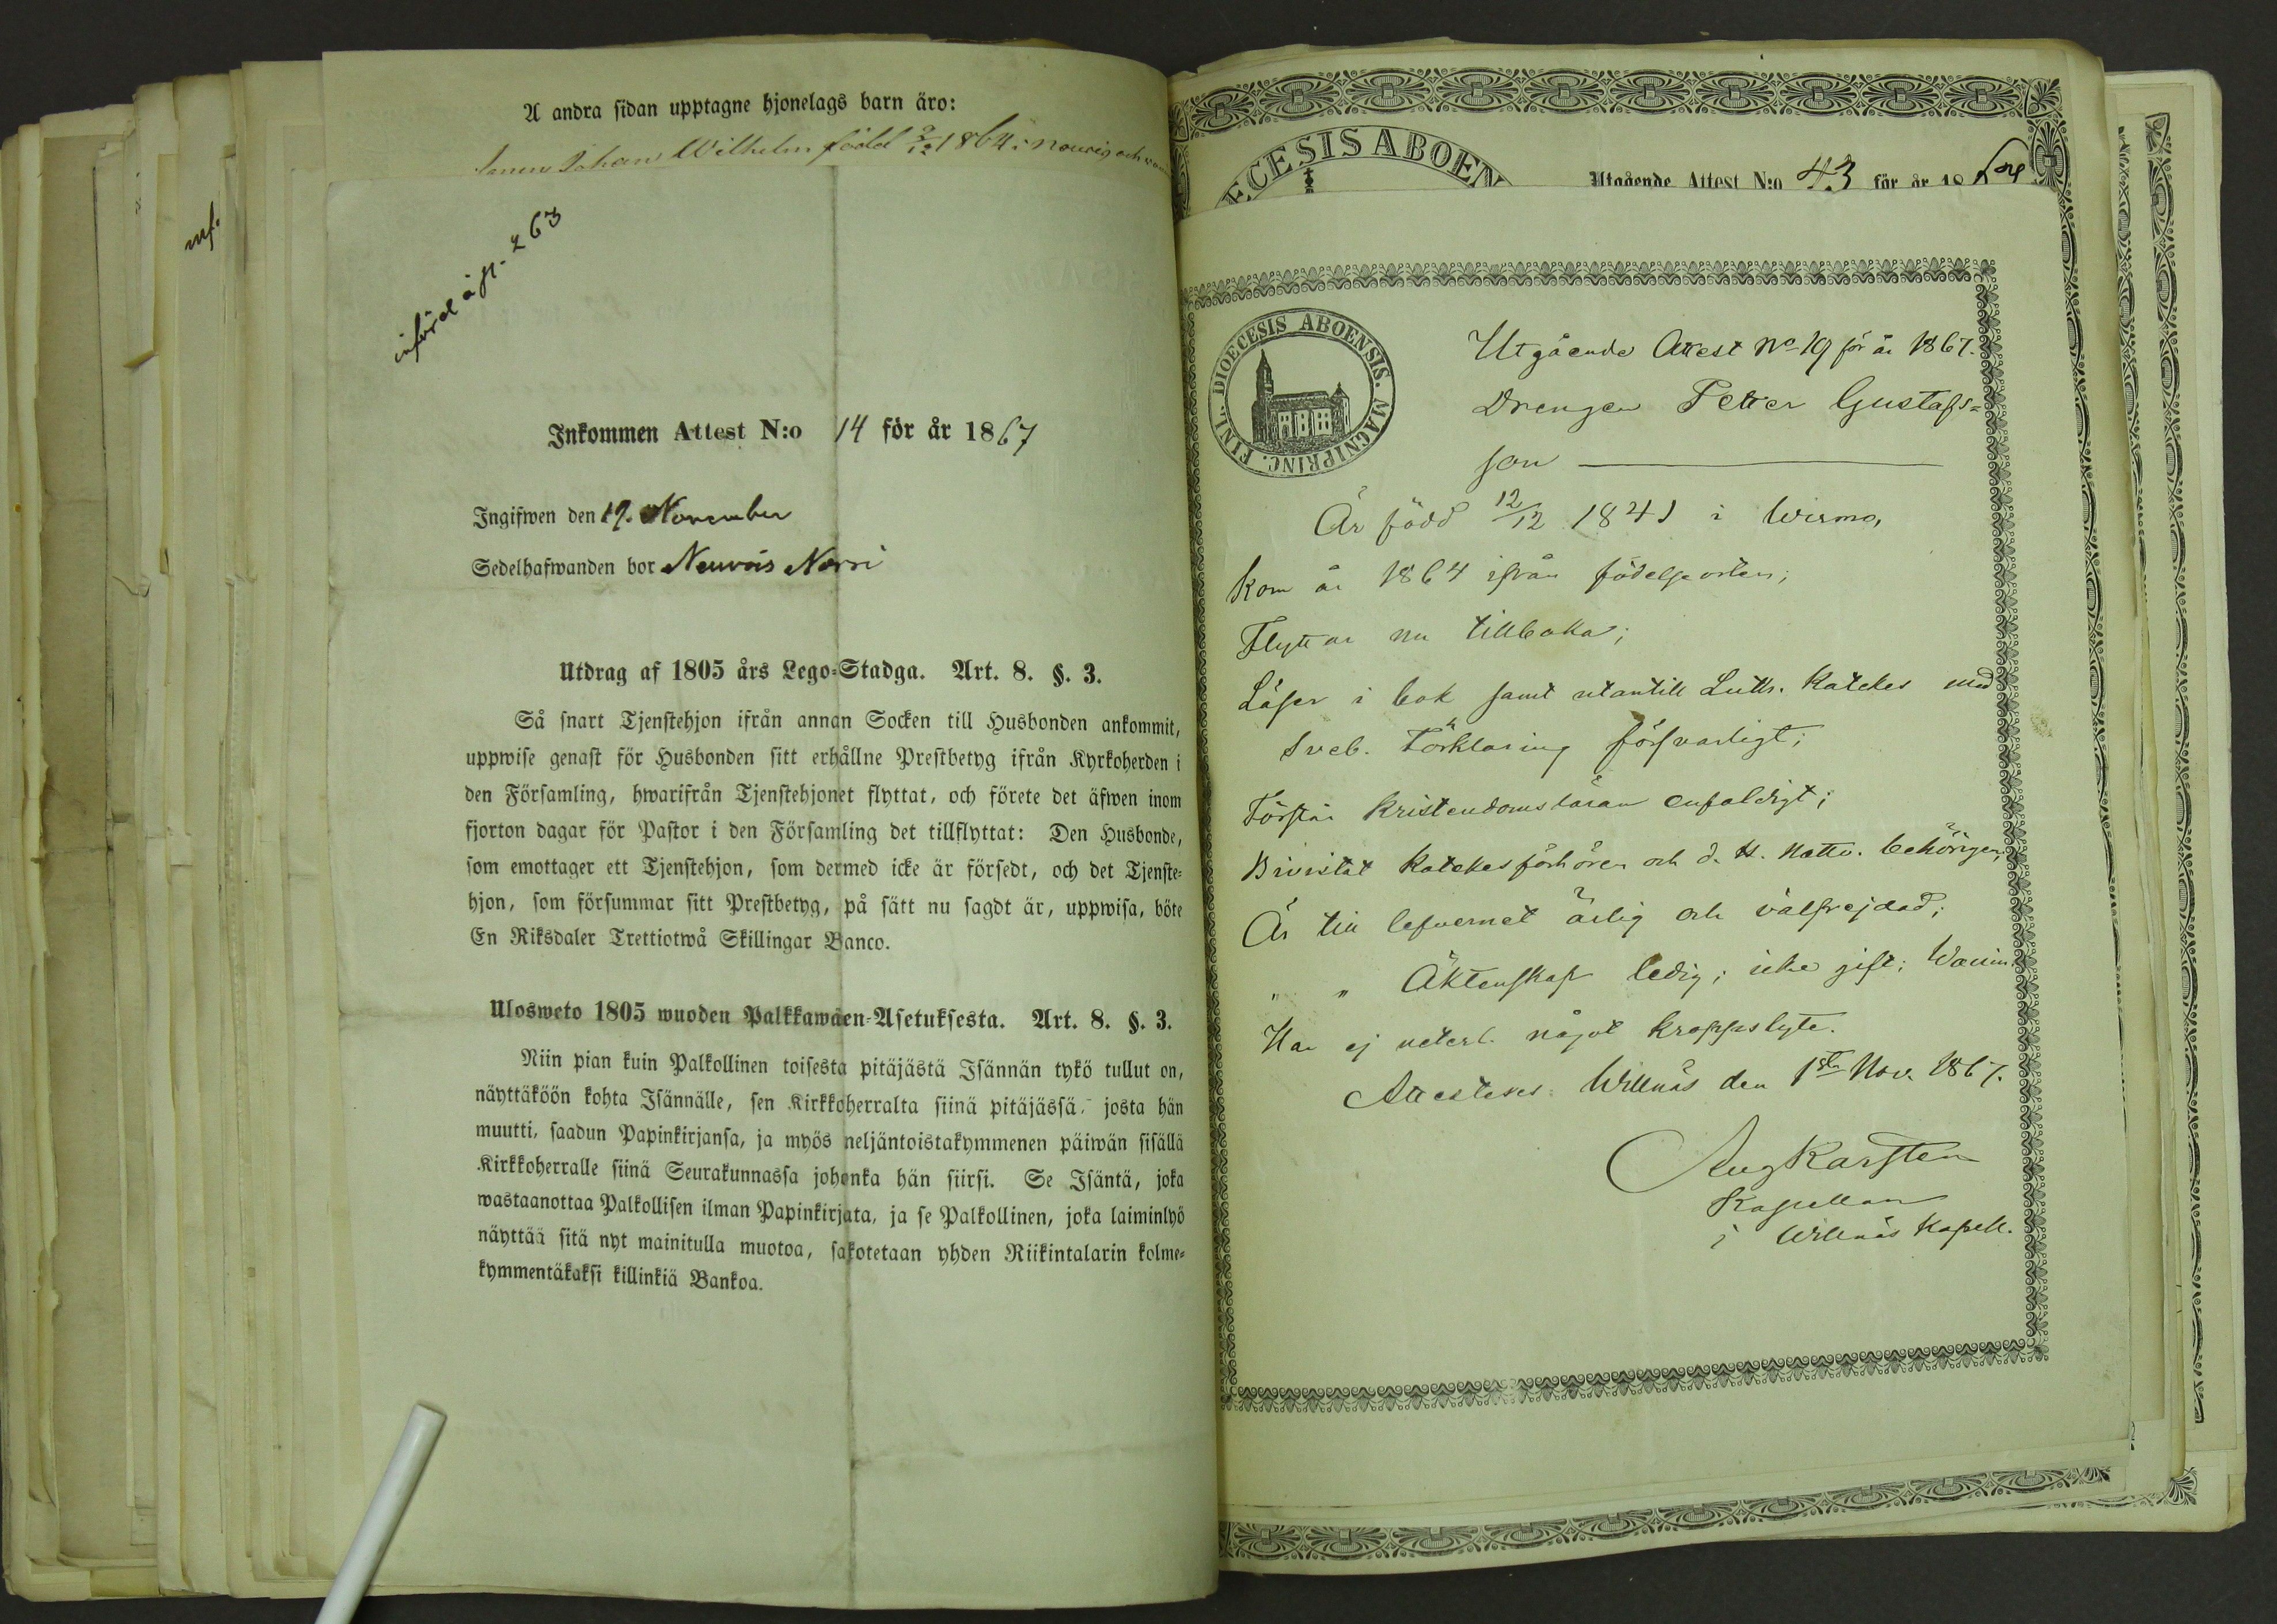 A andra sidan upptagne hjonelags barn äro:
sonen Johan Wilhelm född 2/12 1864: och
mf.
införd å p. 263
Inkommen Attest N:o 14 för år 1867
Ingifwen den 19. November
Sedelhafwanden bor Neuvois Norri
Utdrag af 1805 års Lego-Stadga. Art. 8. §. 3.
Så snart Tjenstehjon ifrån annan Socken till Husbonden ankommit,
uppwise genast för Husbonden sitt erhållne Prestbetyg ifrån Kyrkoherden i
den Församling, hwarifrån Tjenstehjonet flyttat, och förete det äfwen inom
fjorton dagar för Pastor i den Församling det tillflyttat: Den Husbonde,
som emottager ett Tjenstehjon, som dermed icke är försedt, och det Tjenste-
hjon, som försummar sitt Prestbetyg, på sätt nu sagdt är, uppwisa, böte
En Riksdaler Trettiotwå Skillingar Banco.
Ulosweto 1805 wuoden Palkkawäen-Asetuksesta. Art. 8. §. 3.
Niin pian kuin Palkollinen toisesta pitäjästä Isännän tykö tullut on,
näyttäköön kohta Isännälle, sen Kirkkoherralta siinä pitäjässä, josta hän
muutti, saadun Papinkirjansa, ja myös neljäntoistakymmenen päiwän sisällä
Kirkkoherralle siinä Seurakunnassa johonka hän siirsi. Se Isäntä, joka
wastaanottaa Palkollisen ilman Papinkirjata, ja se Palkollinen, joka laiminlyö
näyttää sitä nyt mainitulla muotoa, sakotetaan yhden Riikintalarin kolme-
kymmentäkaksi killinkiä Bankoa.
ECESIS ABOEN
Utgående Attest N:o 43 för år 18
DIOECESIS ABOENSIS. MAGNIPRINC. FINL.
Utgående Attest No 19 för år 1867.
Drengen Petter Gustafs=
son
Är född 12/12 1841 i Wirmo,
Kom år 1864 ifrån födelseorten;
Flyttar nu tillbaka;
Läser i bok samt utantill Luth. Kateches med
Sveb. Förklaring försvarligt;
Förstår Kristendomsläran enfaldigt;
Bivistat Katekesförhören och d. H. Nattv. behörigen;
Är till lefvernet ärlig och välfrejdad;
" " Äktenskap ledig; icke gift;
Har ej veterl. något kroppslyte.
Attesteres. Willnäs den 1sta Nov. 1867.
Aug Karsten
Kapellan
i Willnäs Kapell.